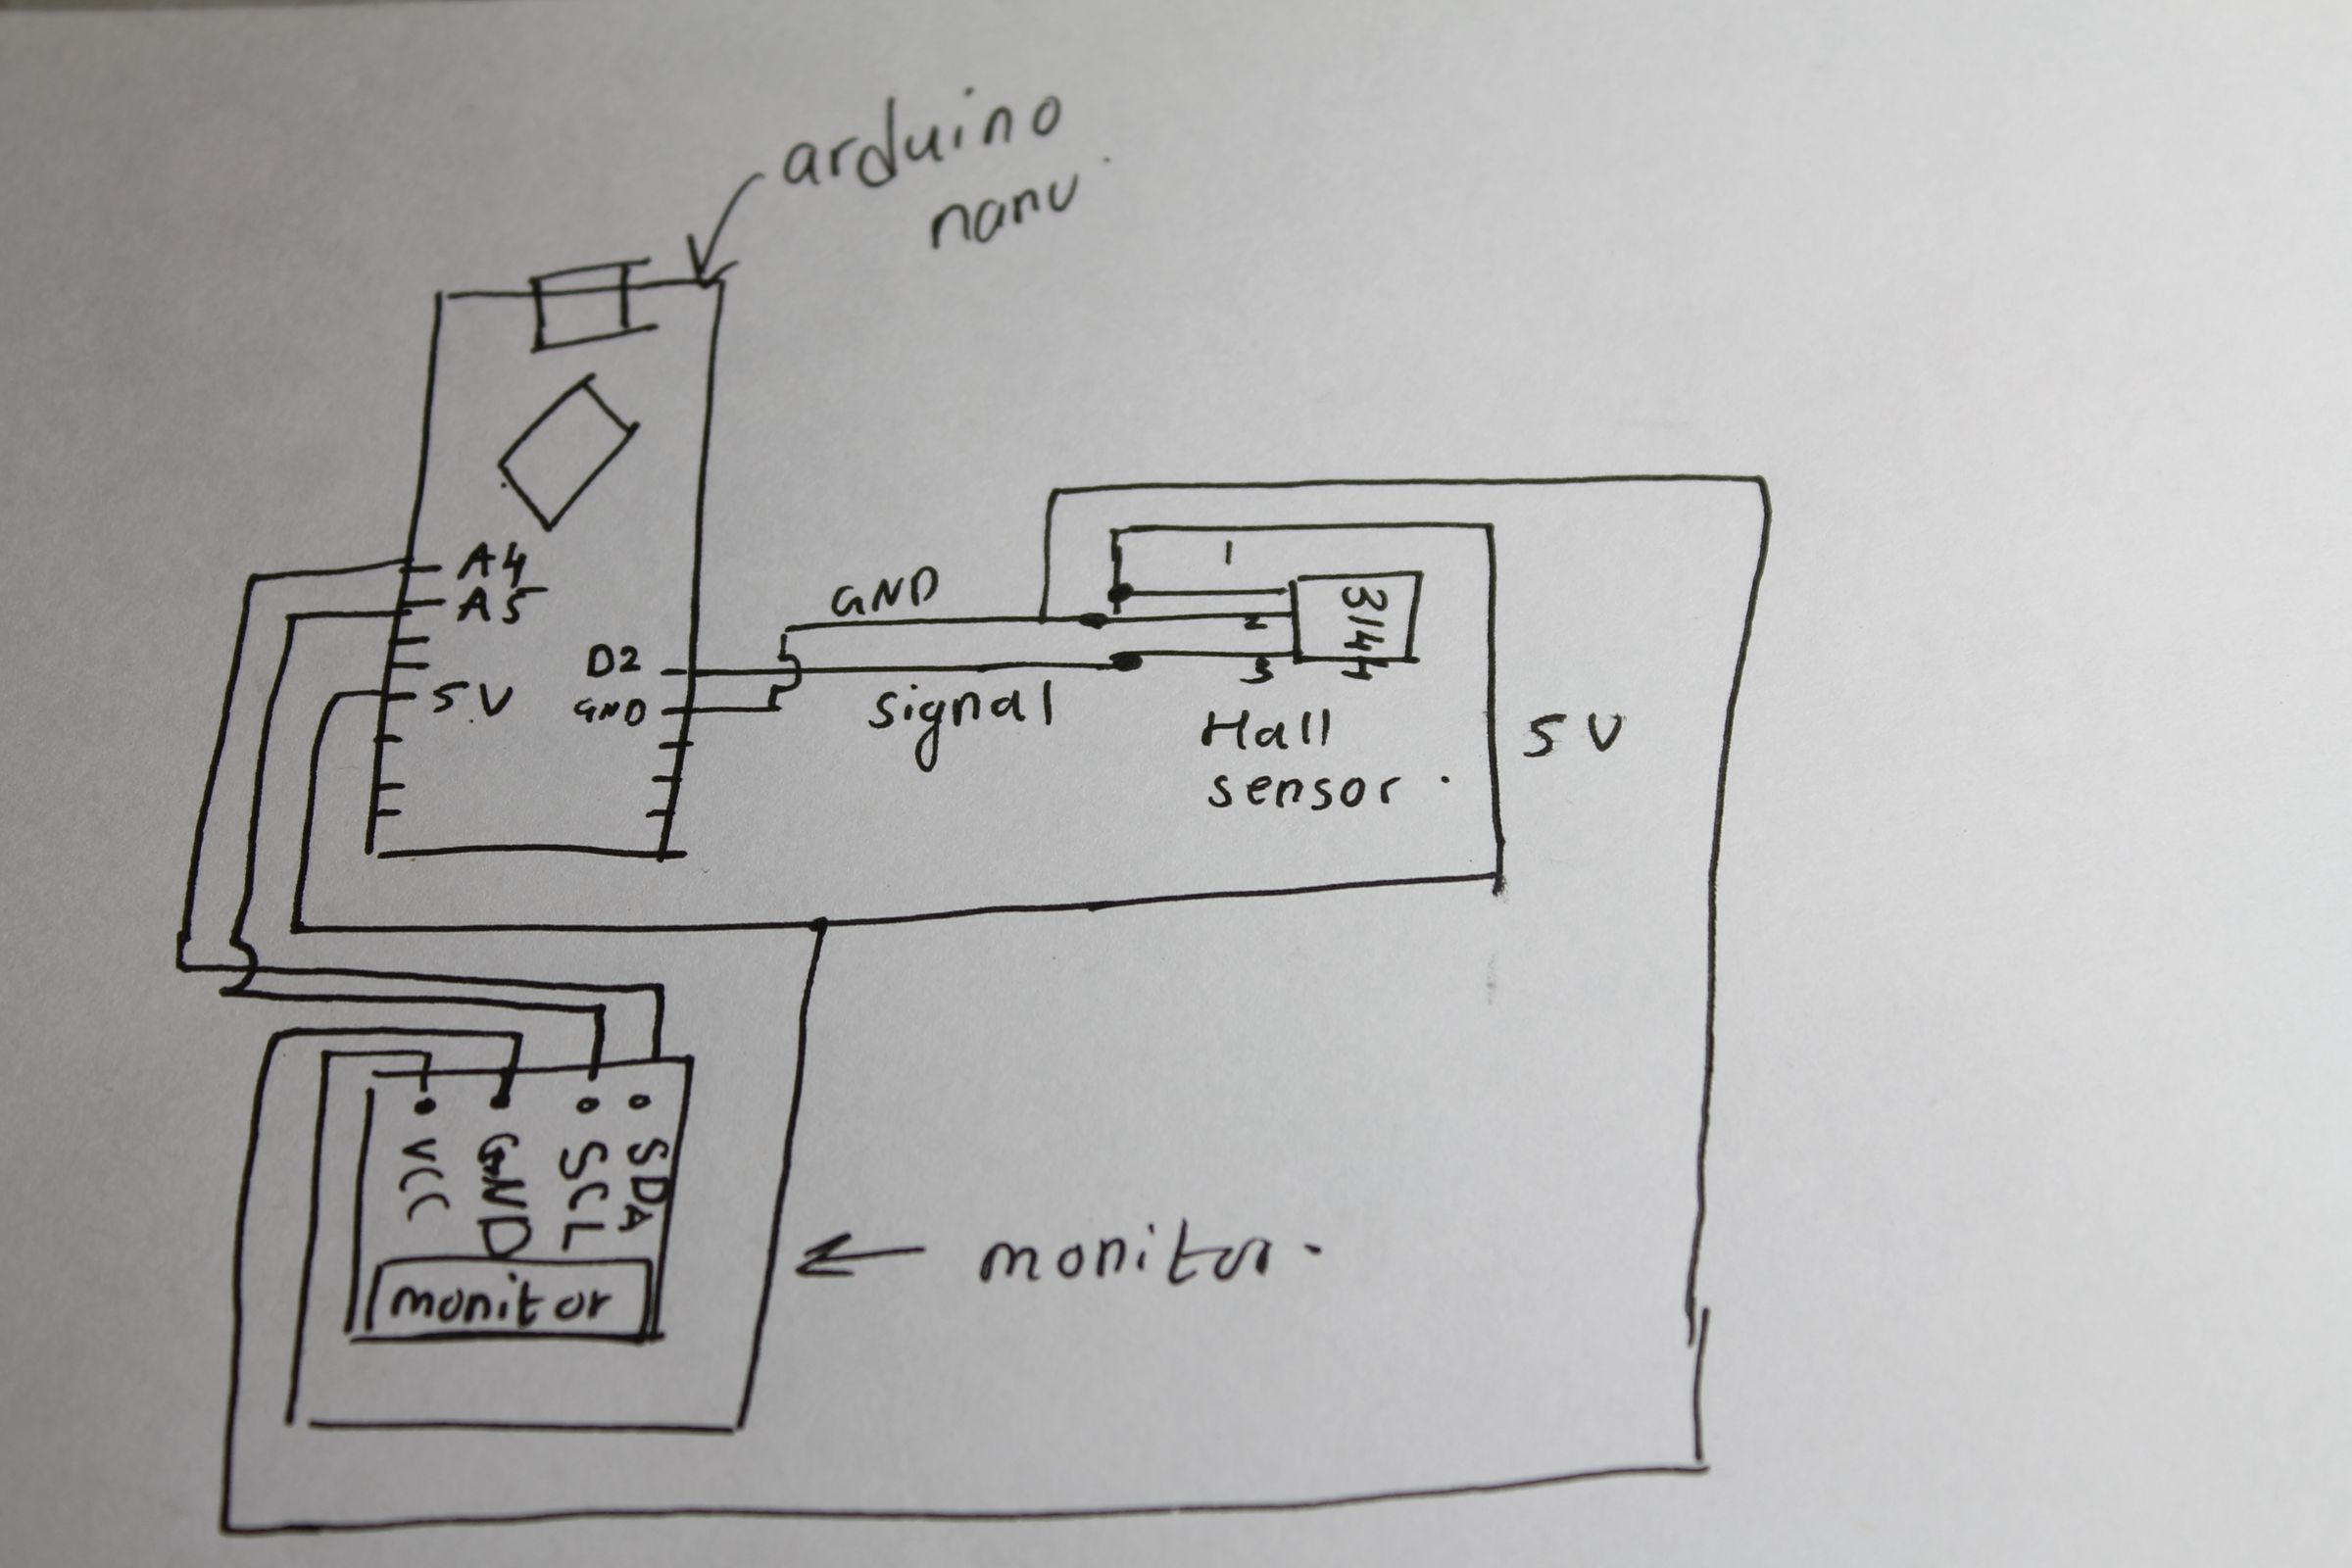 arduino
nanu
A4
A5
D2
5V
GND
GND
signal
1
2
3
3144
Hall
sensor
5V
VCC
GND
SCL
SDA
monitor
monitor